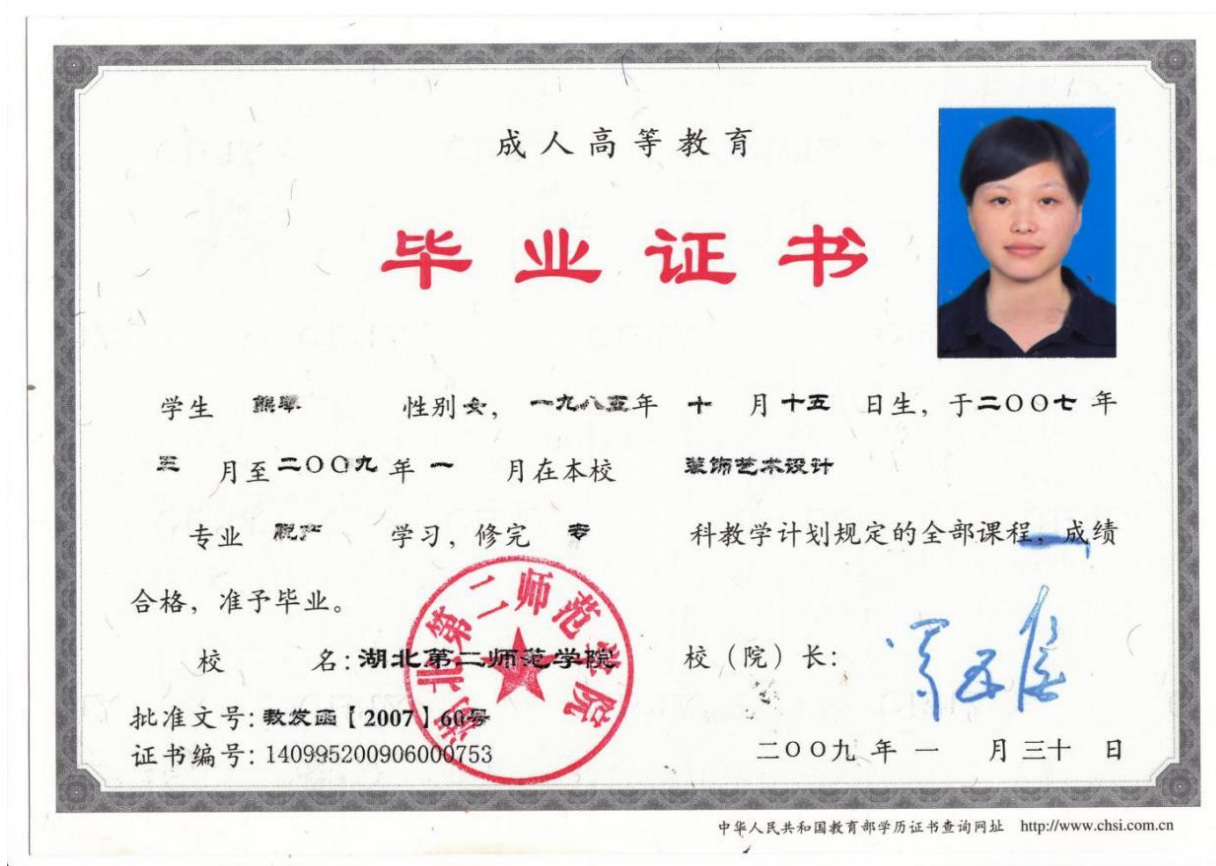 成人高等教育
毕业证书
学生 熊翠 性别女，一九八五年 十 月十五 日生，于二〇〇七 年
三 月至二〇〇九 年 一 月在本校 装饰艺术设计
专业 脱产 学习，修完 专 科教学计划规定的全部课程，成绩
合格，准予毕业。
校 名：湖北第二师范学院 校（院）长：
批准文号：教发函【2007】60号
证书编号：140995200906000753 二〇〇九 年 一 月 三十 日
湖北第二师范学院
中华人民共和国教育部学历证书查询网址 http://www.chsi.com.cn